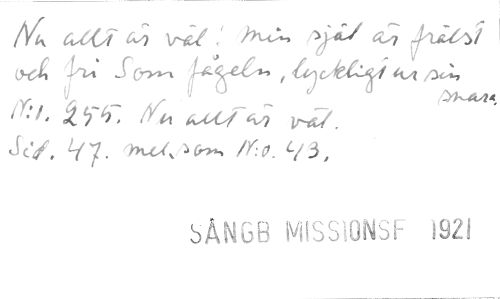 Nu allt är väl! min själ är frälst
och fri Som fågeln, lyckligt ur sin
snara.
N:1. 255. Nu allt är väl.
Sid. 47. mel. som N:o. 43.
SÅNGB MISSIONSF 1921